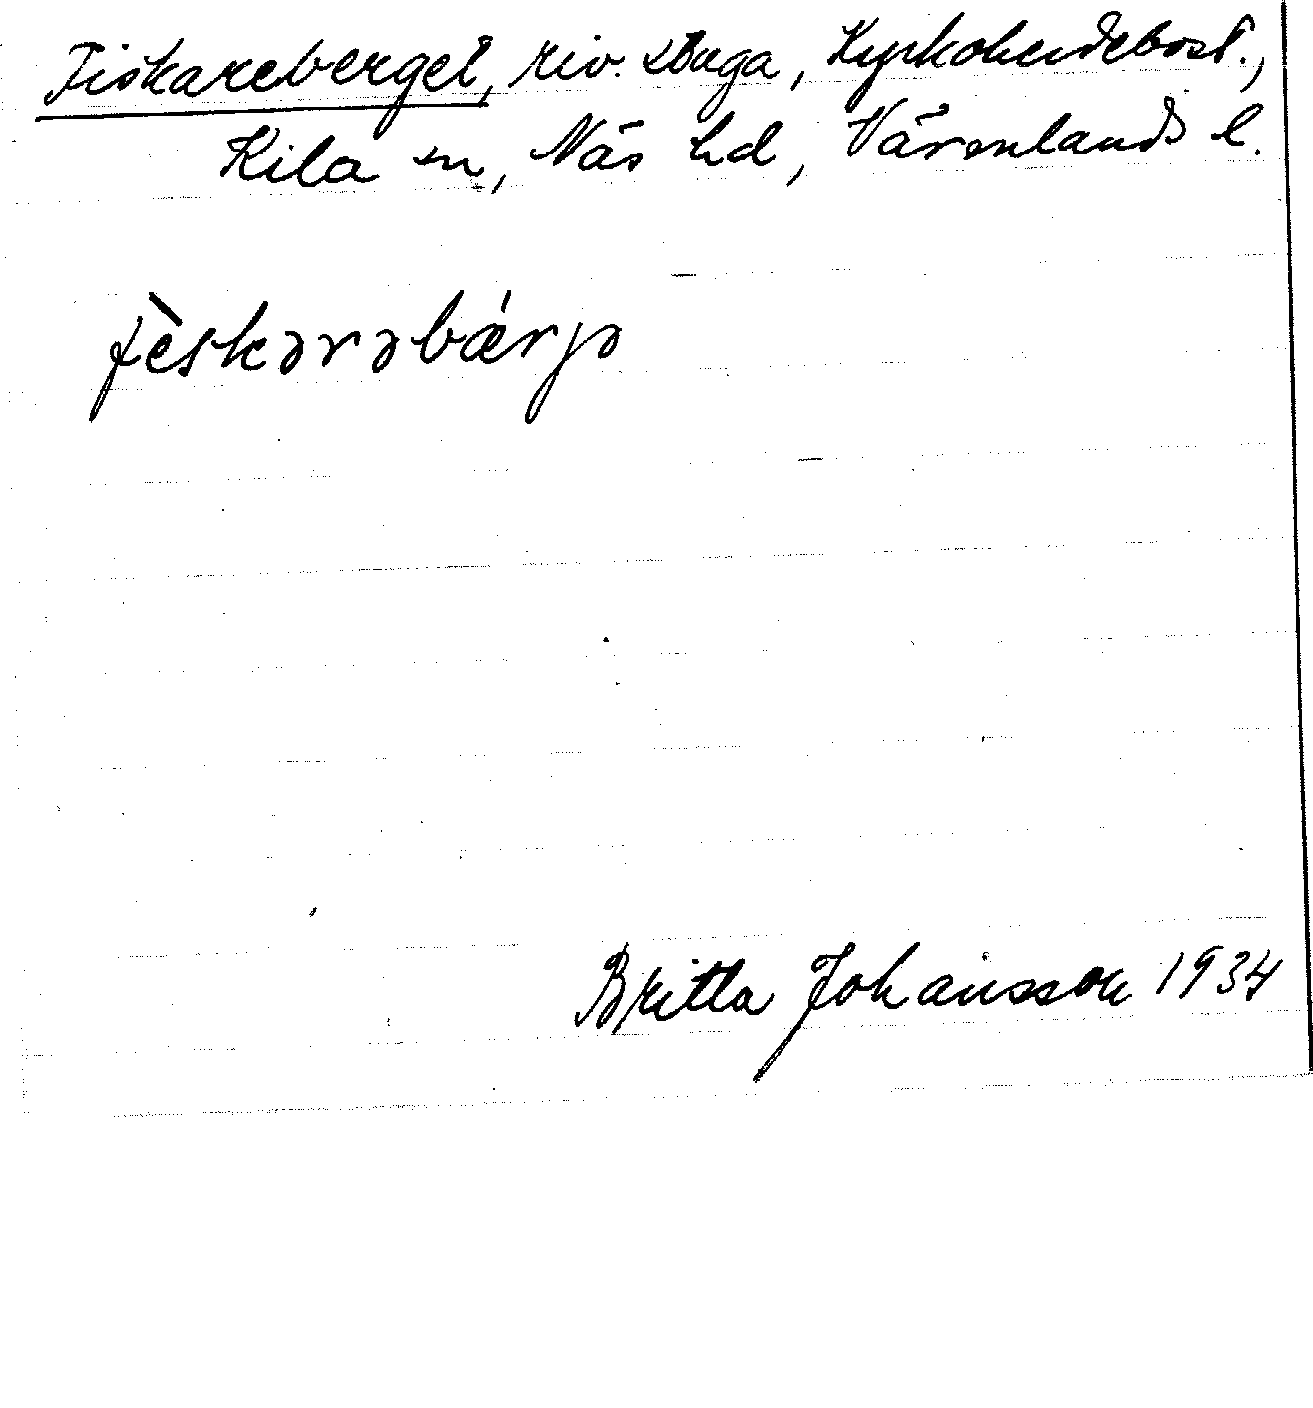 Fiskareberget, riv. stuga, Kyrkoherdebost.,
Kila sn, Näs hd, Värmlands l.
fèskərəbǽrjə
Britta Johansson 1934